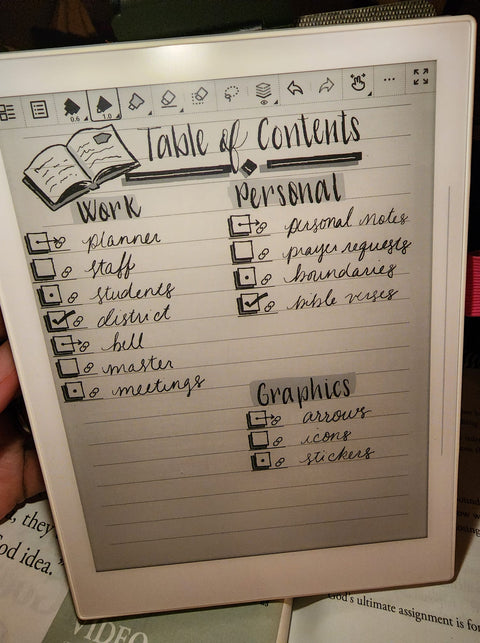 0.6
1.0
Table of Contents
Work
planner
staff
students
district
bell
master
meetings
Personal
personal notes
prayer requests
boundaries
bible verses
Graphics
arrows
icons
stickers
, they
God idea."
VIDEO
God's ultimate assignment is for